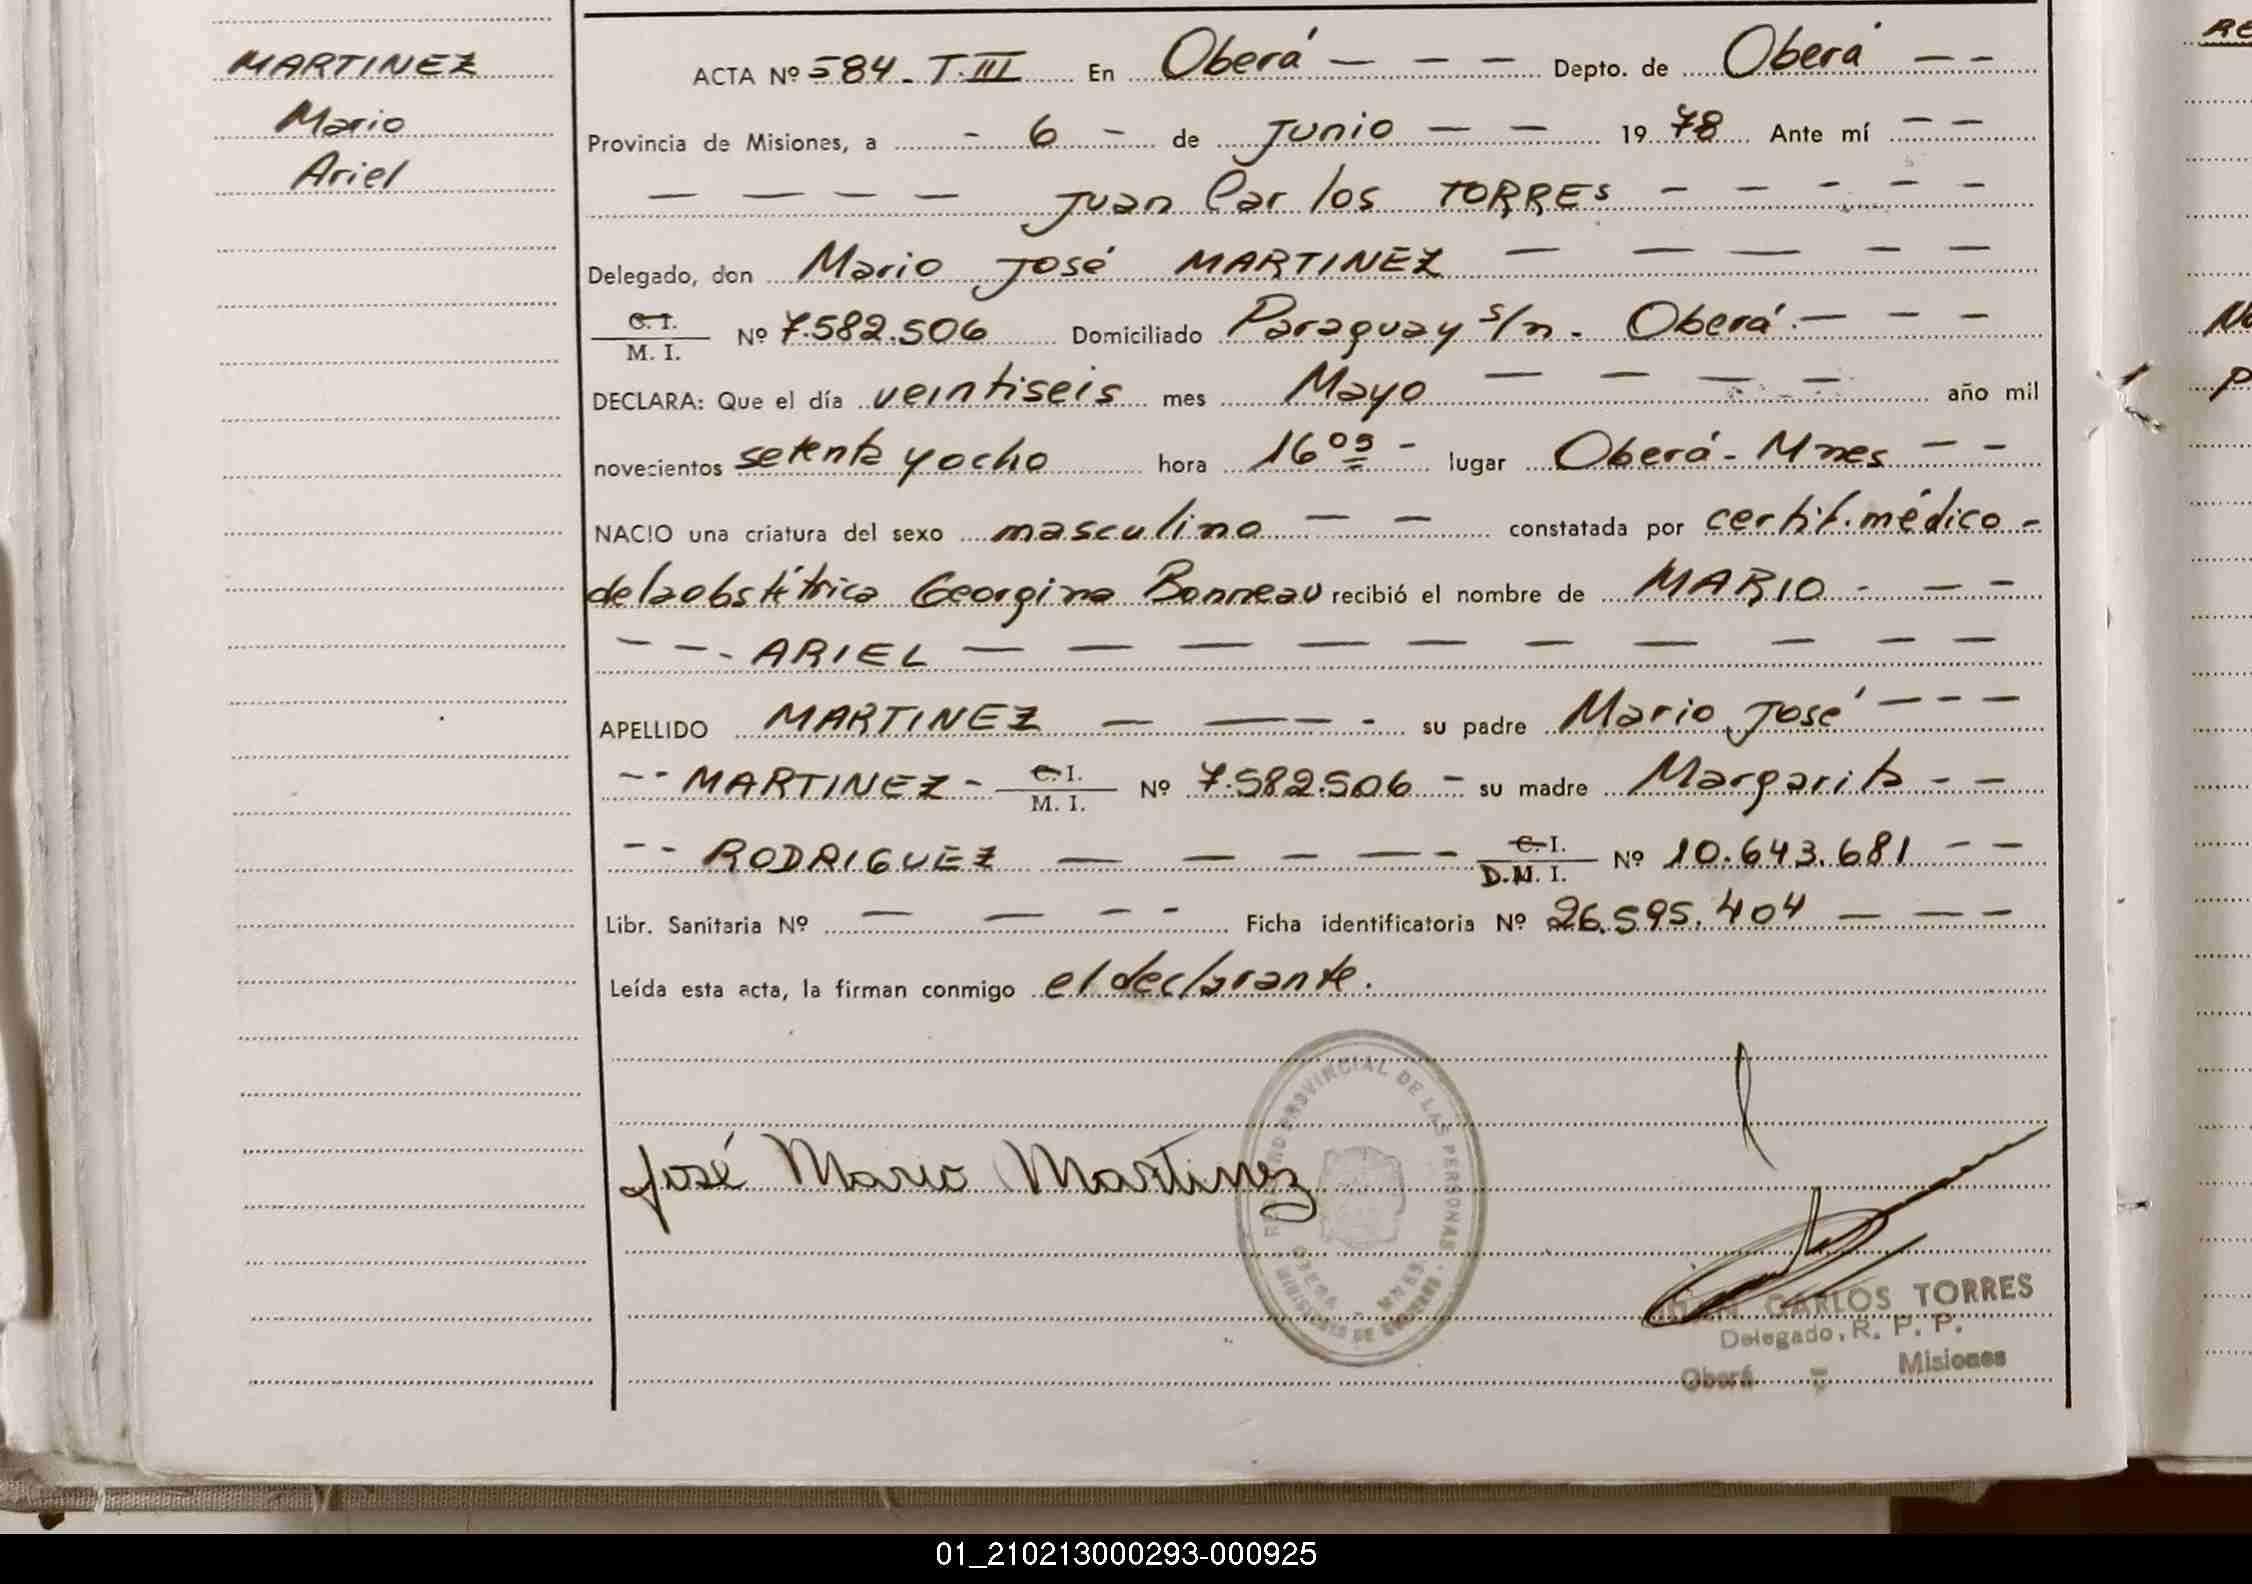 MARTINEZ
Mario
Ariel
ACTA Nº 584 - T. III En Oberá — — — — Depto. de Oberá — —
Provincia de Misiones, a - 6 - de Junio — — 19 78 Ante mí — —
— — — — Juan Carlos TORRES - - - - -
Delegado, don Mario José MARTINEZ — — — — —
C. I.
M. I. Nº 7.582.506 Domiciliado Paraguay s/n - Oberá. — — —
DECLARA: Que el día veintiseis mes Mayo — — — — año mil
novecientos setenta y ocho hora 16 05 - lugar Oberá - Mnes — —
NACIO una criatura del sexo masculino — — constatada por certif. médico -
de la obstétrica Georgina Bonneau recibió el nombre de MARIO - — —
— — - ARIEL — — — — — — — — — —
APELLIDO MARTINEZ — — — - - su padre Mario José — — —
-- MARTINEZ - C. I.
M. I. Nº 7.582.506 - su madre Margarita — —
-- RODRIGUEZ — — — — - C. I.
D.M. I. Nº 10.643.681 — —
Libr. Sanitaria Nº — — - - Ficha identificatoria Nº 26.595.404 — — —
Leída esta acta, la firman conmigo el declarante.
José Mario Martinez
REGISTRO PROVINCIAL DE LAS PERSONAS
MINISTERIO DE GOBIERNO
OBERA - MNES.
JUAN CARLOS TORRES
Delegado, R. P. P.
Oberá - Misiones
RE
No
P
01_210213000293-000925